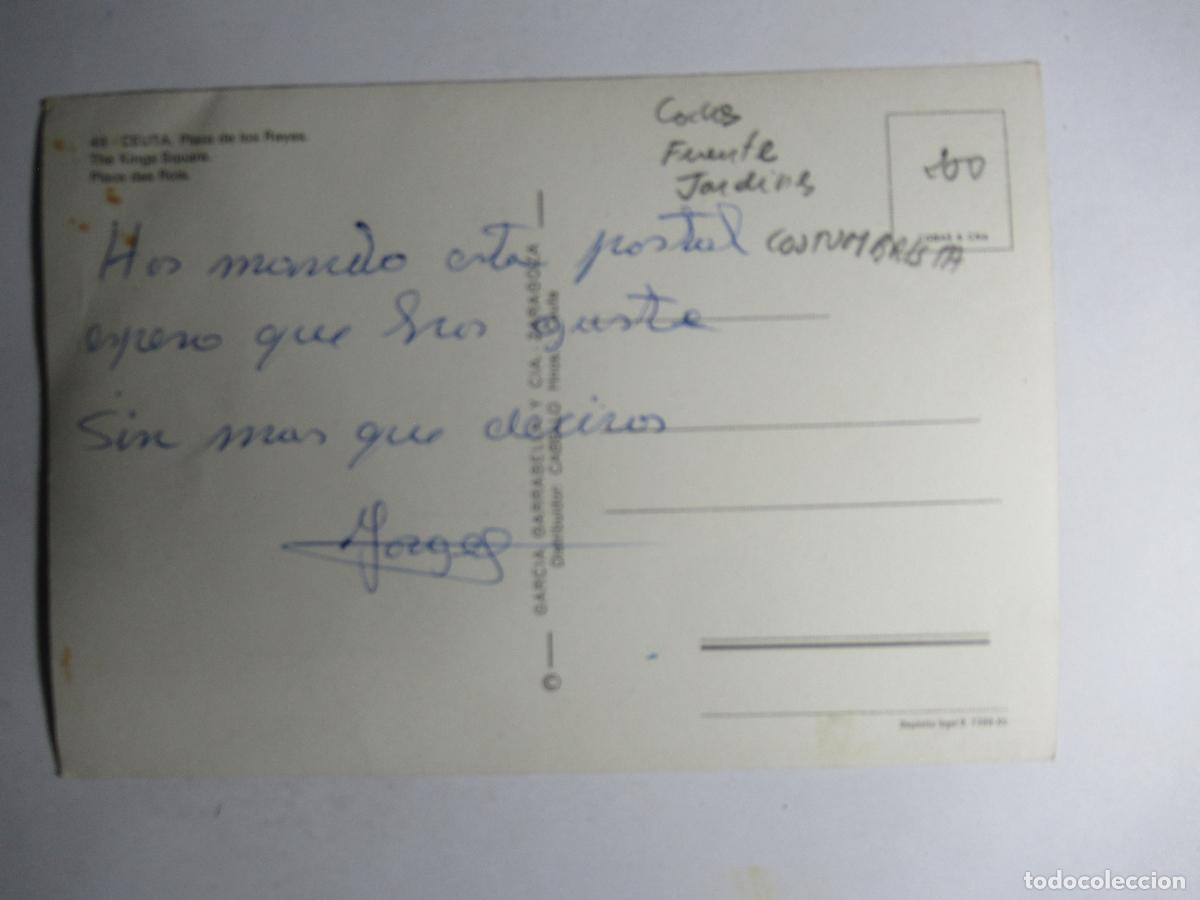 49 - CEUTA. Plaza de los Reyes.
The Kings Square.
Place des Rois.
Coches
Fuente
Jardines
COSTUMBRISTA
Hos mando esta postal
espero que hos guste
Sin mas que deciros
Jorge
© GARCIA GARRABELLA Y CIA. - ZARAGOZA
Distribuidor: CABRILLO Hnos. - Ceuta
Depósito legal B.
todocoleccion